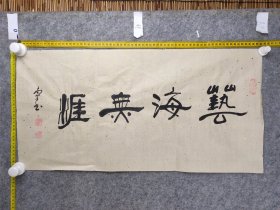 藝海無涯